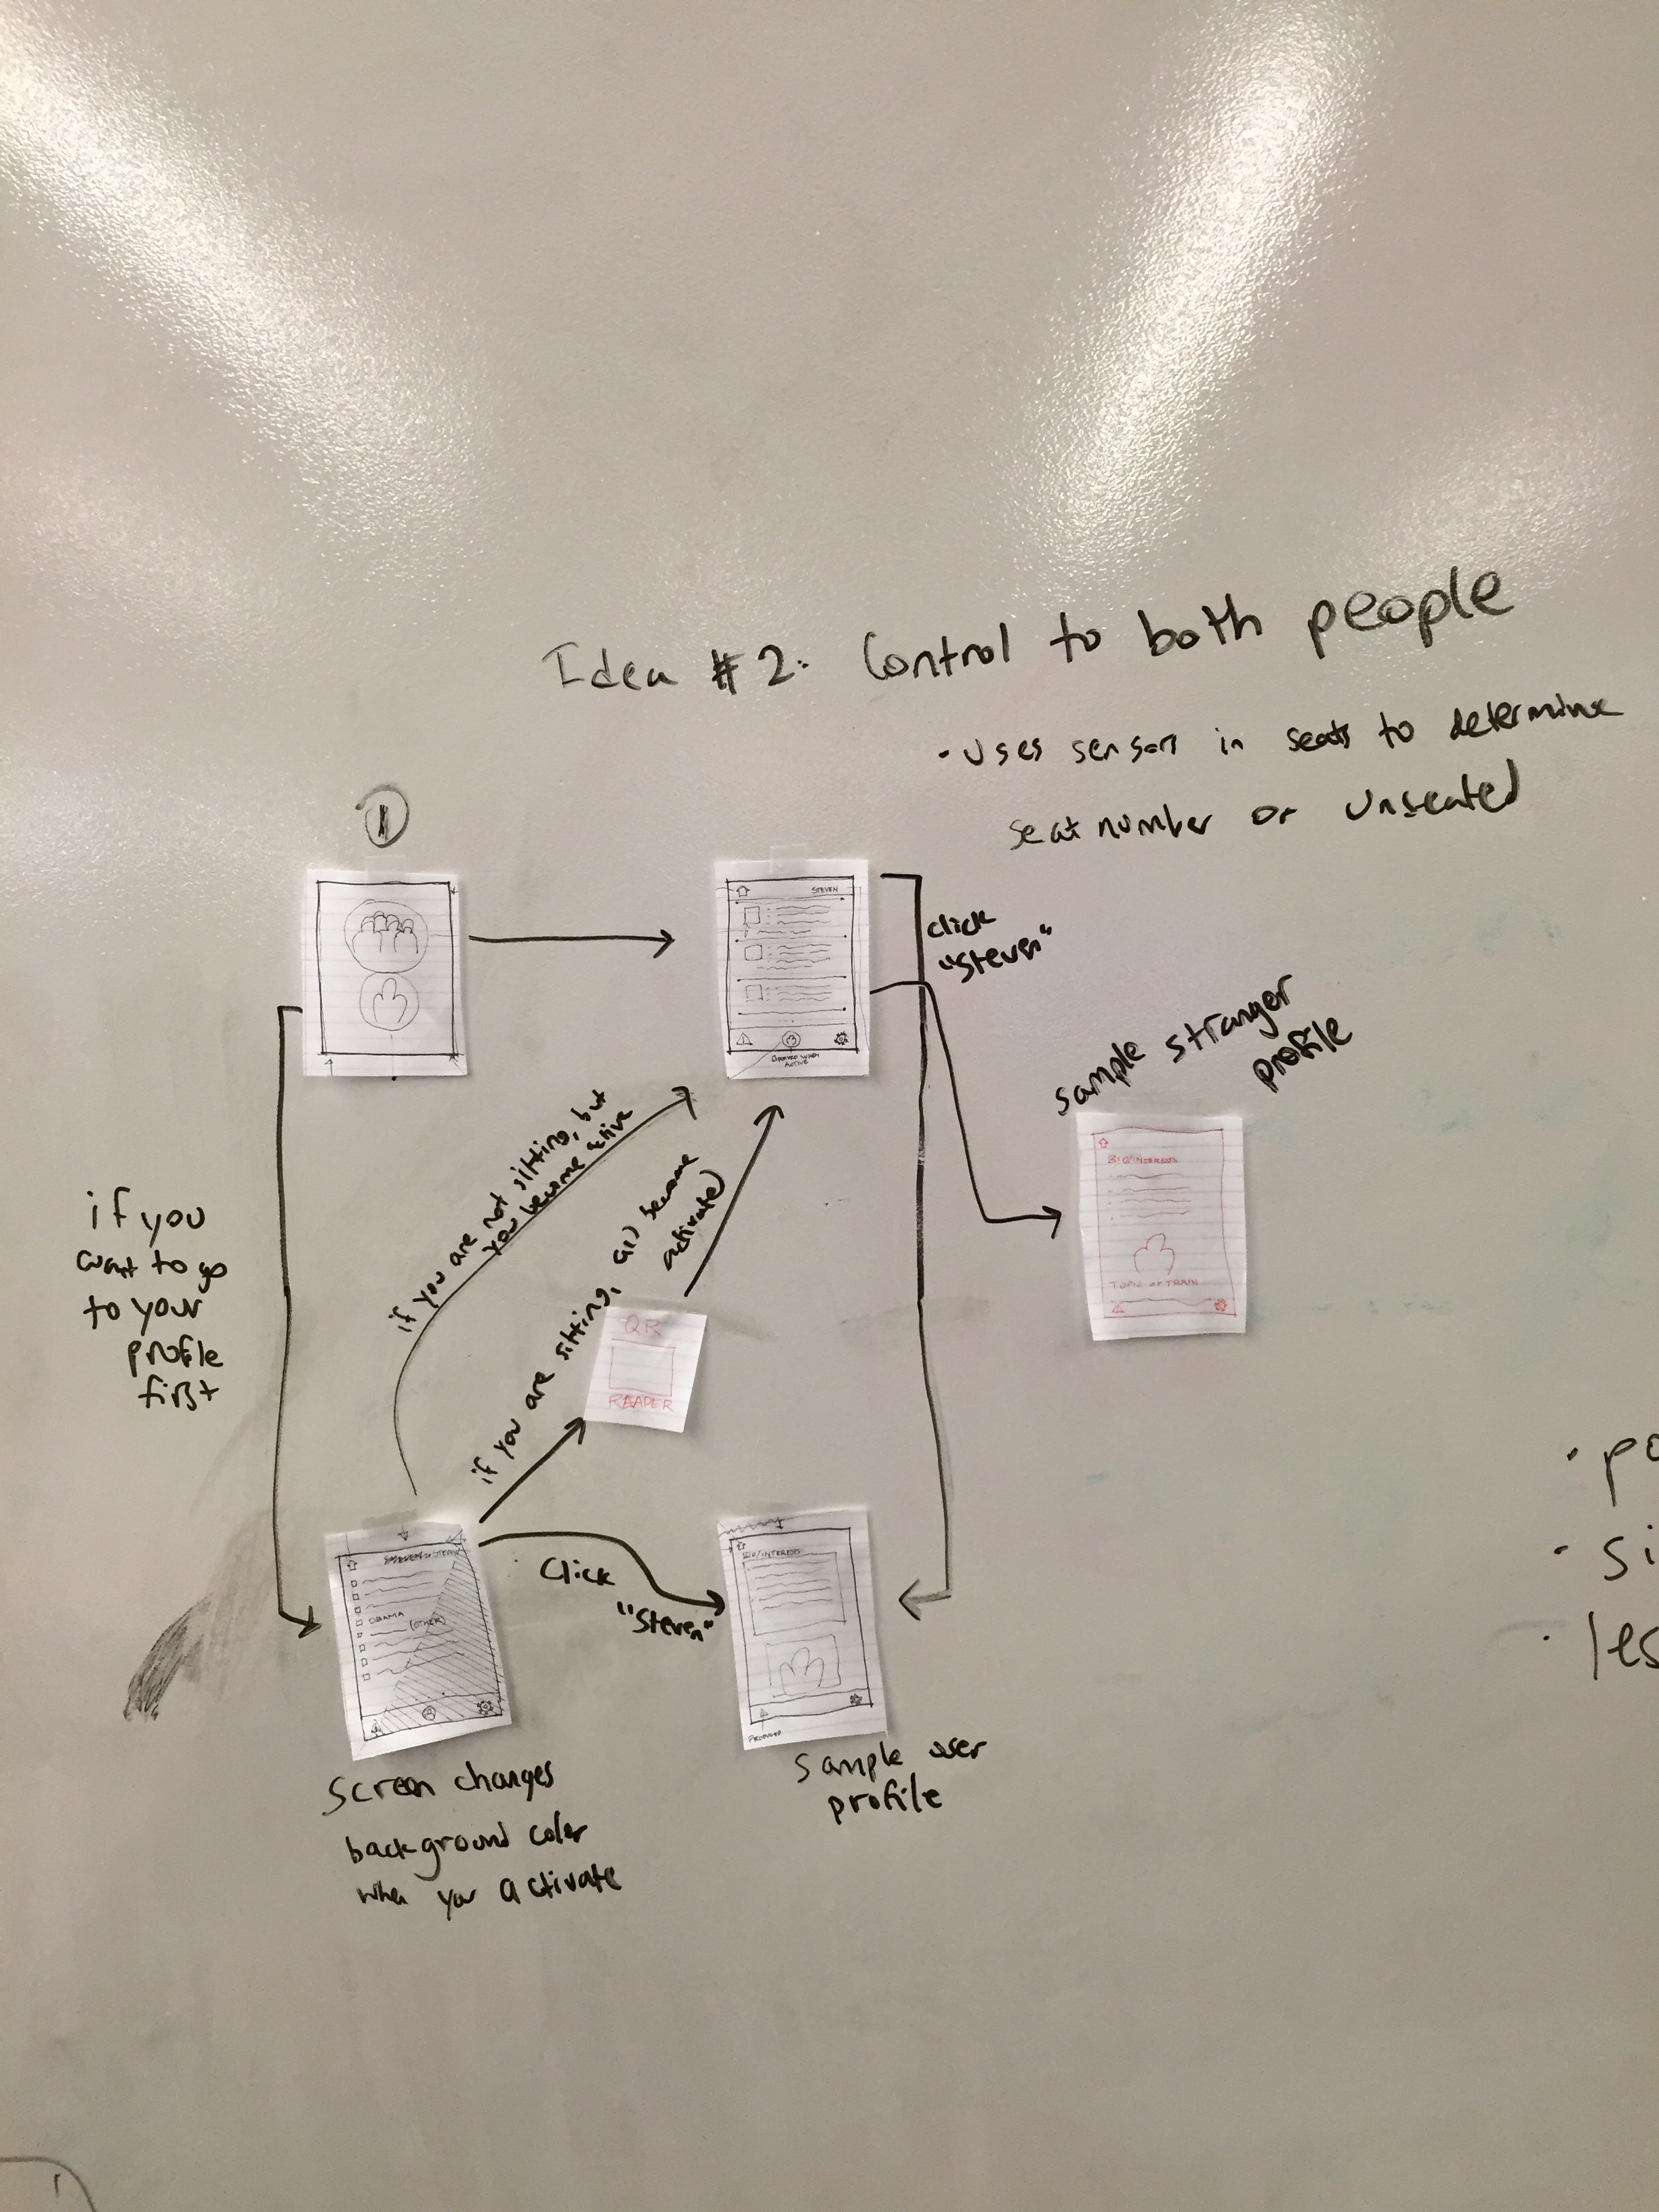 Idea #2: Control to both people
• Uses sensors in seats to determine
seat number or unseated
1
STEVEN
ACTIVE
click
"Steven"
sample stranger
profile
BIO/INTERESTS
TOPIC OF TRAIN
if you
want to go
to your
profile
first
if you are not sitting, but
you become active
if you are sitting,
become
activated
QR
READER
Click
"Steven"
OBAMA
(OTHER)
BIO/INTERESTS
Screen changes
background color
when you activate
Sample user
profile
• po
• si
• les